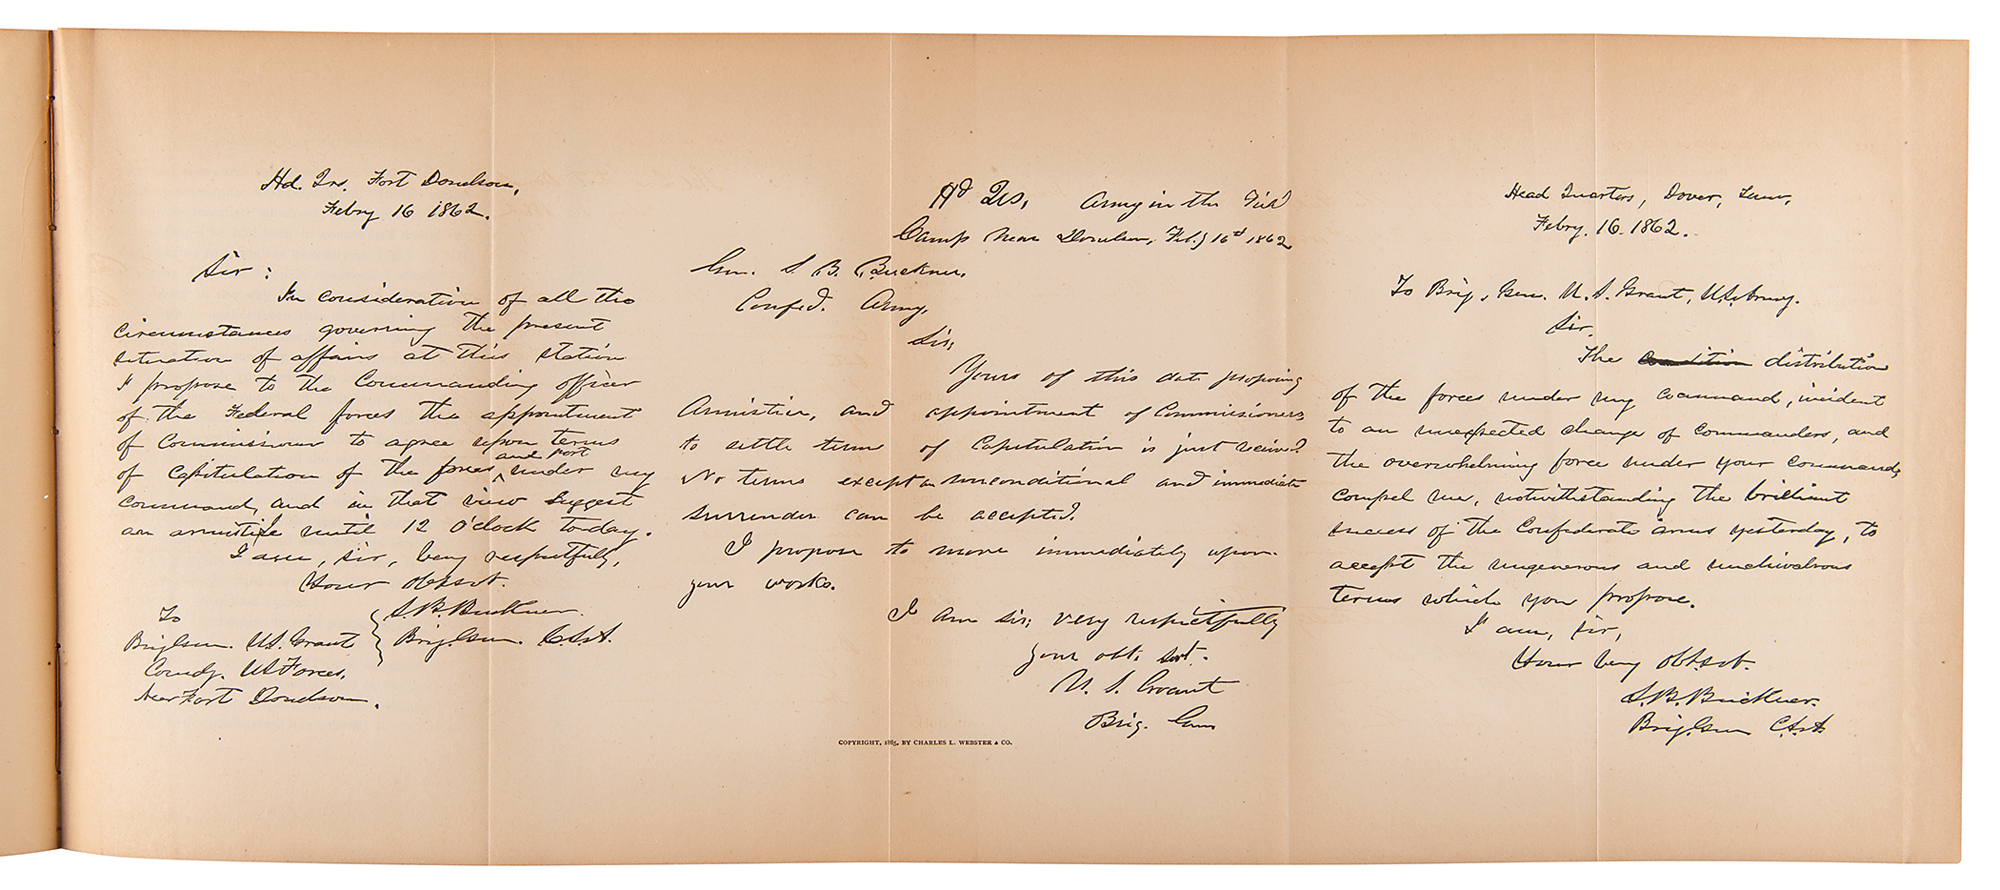 Hd. Qrs. Fort Donelson,
Febry 16 1862.
Sir:
In consideration of all the
circumstances governing the present
situation of affairs at this station
I propose to the Commanding officer
of the Federal forces the appointment
of Commissioners to agree upon terms
of capitulation of the forces and fort under my
command, and in that view suggest
an armistice until 12 o'clock today.
I am, sir, very respectfully,
Your obt. svt.
S. B. Buckner.
Brig. Gen. C.S.A.
To
Brig. Gen. U.S. Grant
Comdg. U.S. Forces,
Near Fort Donelson.
Hd Qrs, Army in the Field
Camp Near Donelson, Feby 16th 1862
Gen. S. B. Buckner,
Confed. Army,
Sir;
Yours of this date proposing
Armistice, and appointment of Commissioners,
to settle terms of Capitulation is just received.
No terms except an unconditional and immediate
surrender can be accepted.
I propose to move immediately upon
your works.
I am sir; very respectfully
your obt. svt.
U. S. Grant
Brig. Gen
COPYRIGHT, 1885, BY CHARLES L. WEBSTER & CO.
Head Quarters, Dover, Tenn,
Febry. 16. 1862.
To Brig. Gen. U. S. Grant, U.S. Army.
Sir,
The condition distribution
of the forces under my command, incident
to an unexpected change of commanders, and
the overwhelming force under your command,
compel me, notwithstanding the brilliant
success of the Confederate arms yesterday, to
accept the ungenerous and unchivalrous
terms which you propose.
I am, sir,
Your very obt. svt.
S. B. Buckner.
Brig. Gen C.S.A.